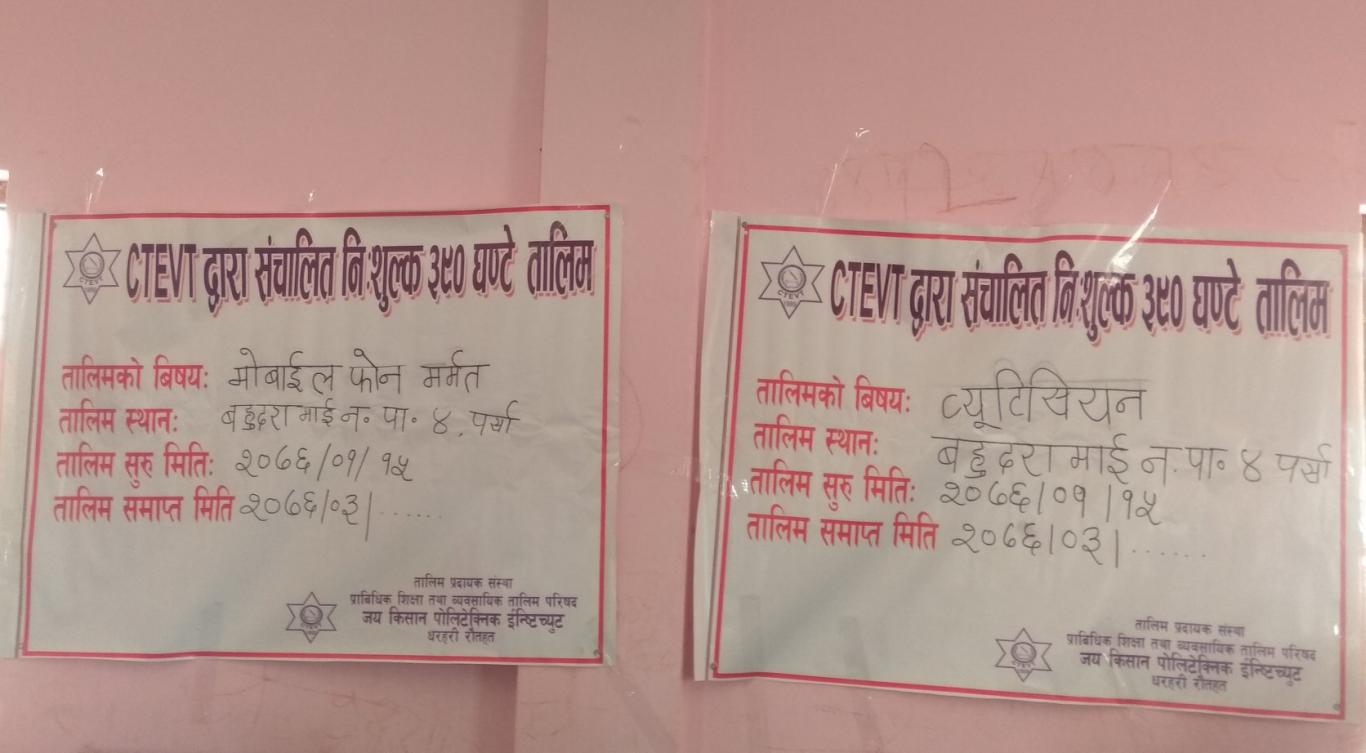 CTEVT द्वारा संचालित निःशुल्क ३९० घण्टे तालिम
तालिमको बिषयः मोबाईल फोन मर्मत
तालिम स्थानः बहुदरा माई न॰ पा॰ ४, पर्सा
तालिम सुरु मितिः २०७६/०१/१५
तालिम समाप्त मिति २०७६/०३/......
तालिम प्रदायक संस्था
प्राबिधिक शिक्षा तथा व्यवसायिक तालिम परिषद
जय किसान पोलिटेक्निक ईन्ष्टिच्युट
धरहरी रौतहत
CTEVT
CTEVT द्वारा संचालित निःशुल्क ३९० घण्टे तालिम
तालिमको बिषयः ब्यूटिसियन
तालिम स्थानः बहुदरा माई न. पा॰ ४ पर्सा
तालिम सुरु मितिः २०७६/०१/१५
तालिम समाप्त मिति २०७६/०३/......
तालिम प्रदायक संस्था
प्राबिधिक शिक्षा तथा व्यवसायिक तालिम परिषद
जय किसान पोलिटेक्निक ईन्ष्टिच्युट
धरहरी रौतहत
CTEVT